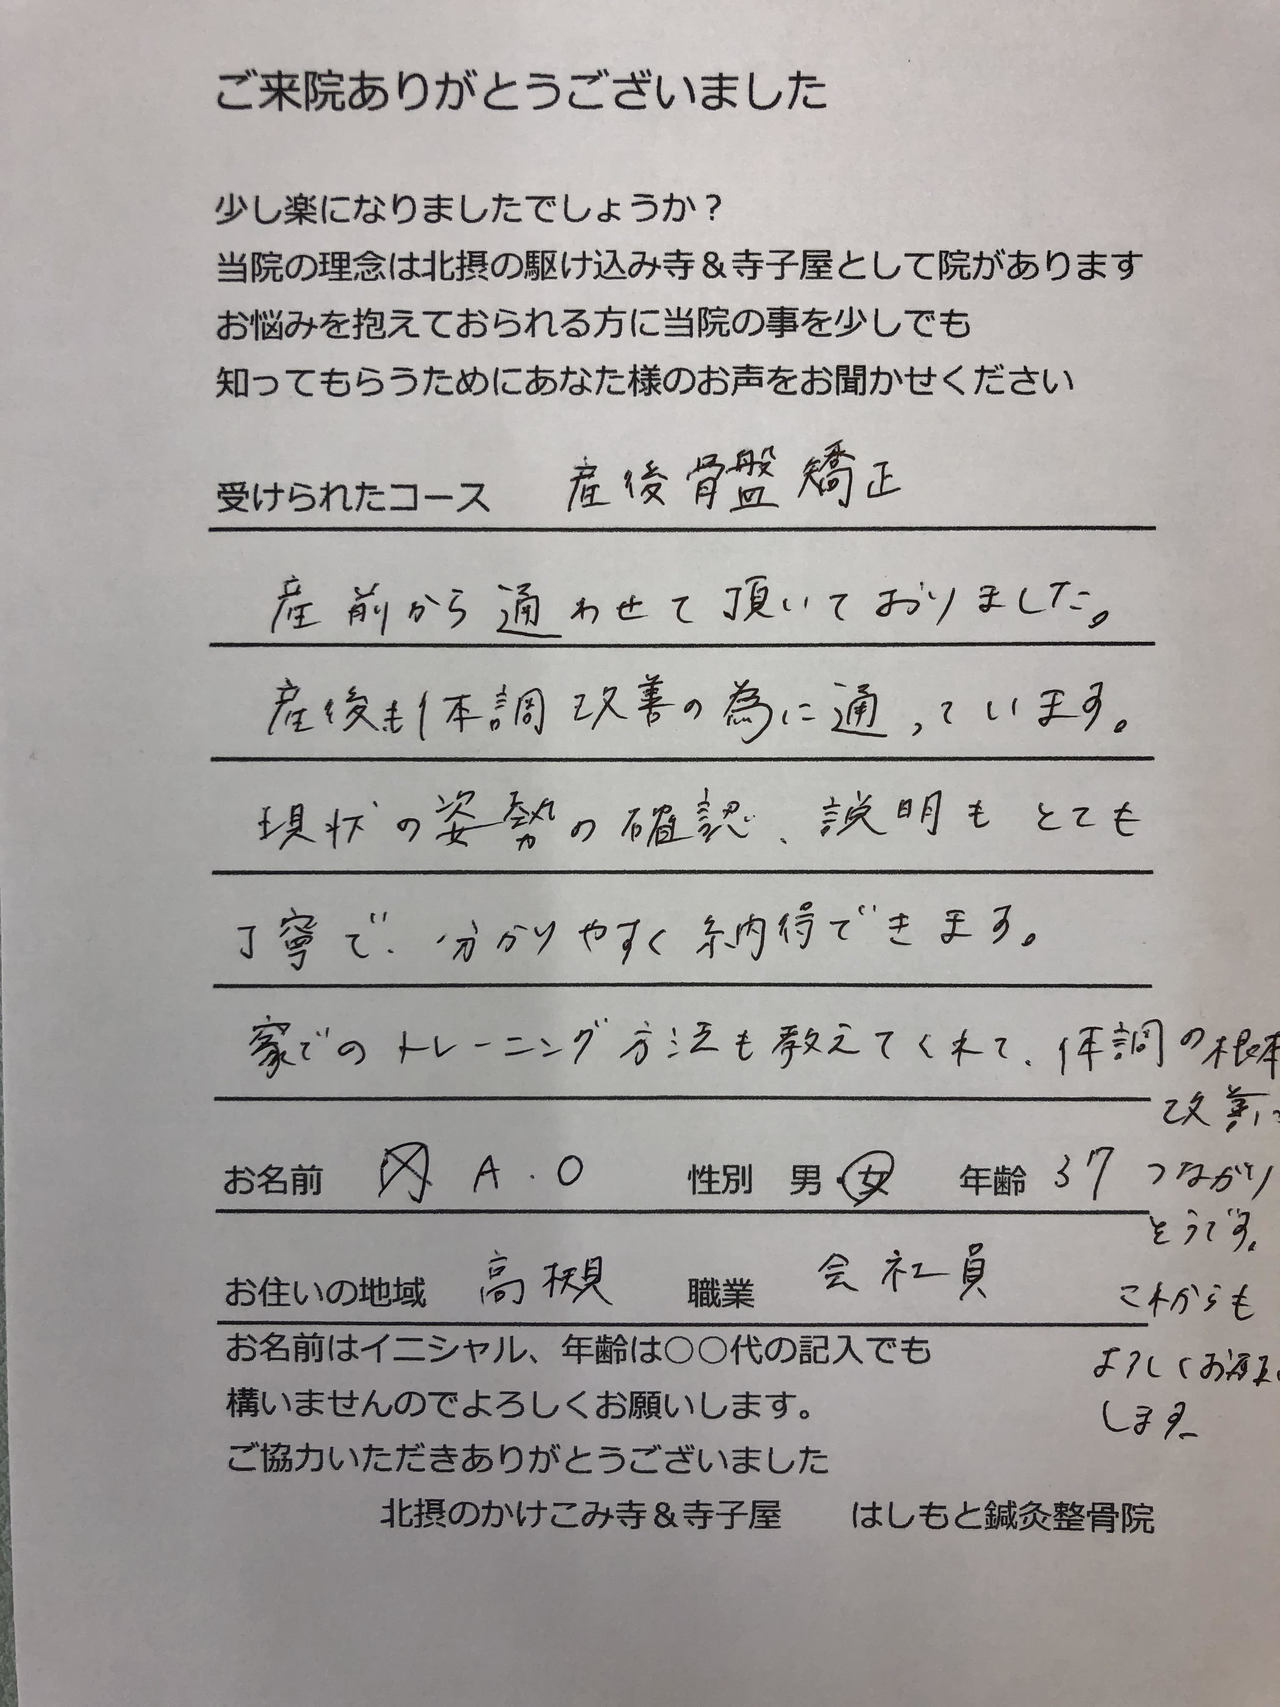 ご来院ありがとうございました
少し楽になりましたでしょうか？
当院の理念は北摂の駆け込み寺＆寺子屋として院があります
お悩みを抱えておられる方に当院の事を少しでも
知ってもらうためにあなた様のお声をお聞かせください
受けられたコース 産後骨盤矯正
産前から通わせて頂いておりました。
産後も体調改善の為に通っています。
現状の姿勢の確認、説明もとても
丁寧で、分かりやすく納得できます。
家でのトレーニング方法も教えてくれて、体調の根本
改善に
つながり
そうです。
これからも
よろしくお願い
します
お名前 A.O 性別 男・女 年齢 37
お住いの地域 高槻 職業 会社員
お名前はイニシャル、年齢は〇〇代の記入でも
構いませんのでよろしくお願いします。
ご協力いただきありがとうございました
北摂のかけこみ寺＆寺子屋 はしもと鍼灸整骨院